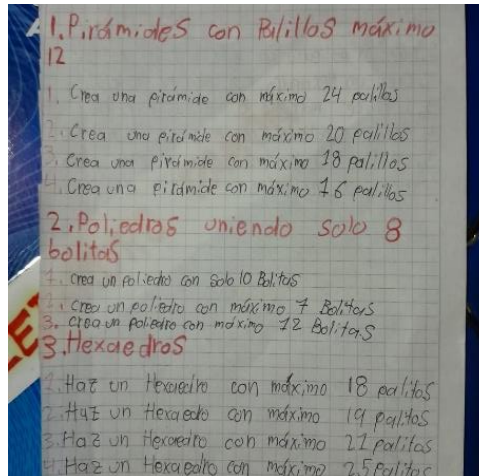 1. Pirámides con Palillos máximo
12
1. Crea una pirámide con máximo 24 palillos
2. Crea una pirámide con máximo 20 palillos
3. Crea una pirámide con máximo 18 palillos
4. Crea una pirámide con máximo 16 palillos
2. Poliedros uniendo solo 8
bolitas
1. crea un poliedro con solo 10 Bolitas
2. creo un poliedro con máximo 7 Bolitas
3. crea un poliedro con máximo 12 Bolitas
3. Hexaedros
1. Haz un Hexaedro con máximo 18 palitos
2. Haz un Hexaedro con máximo 19 palitos
3. Haz un Hexaedro con máximo 21 palitos
4. Haz un Hexaedro con máximo 25 palitos